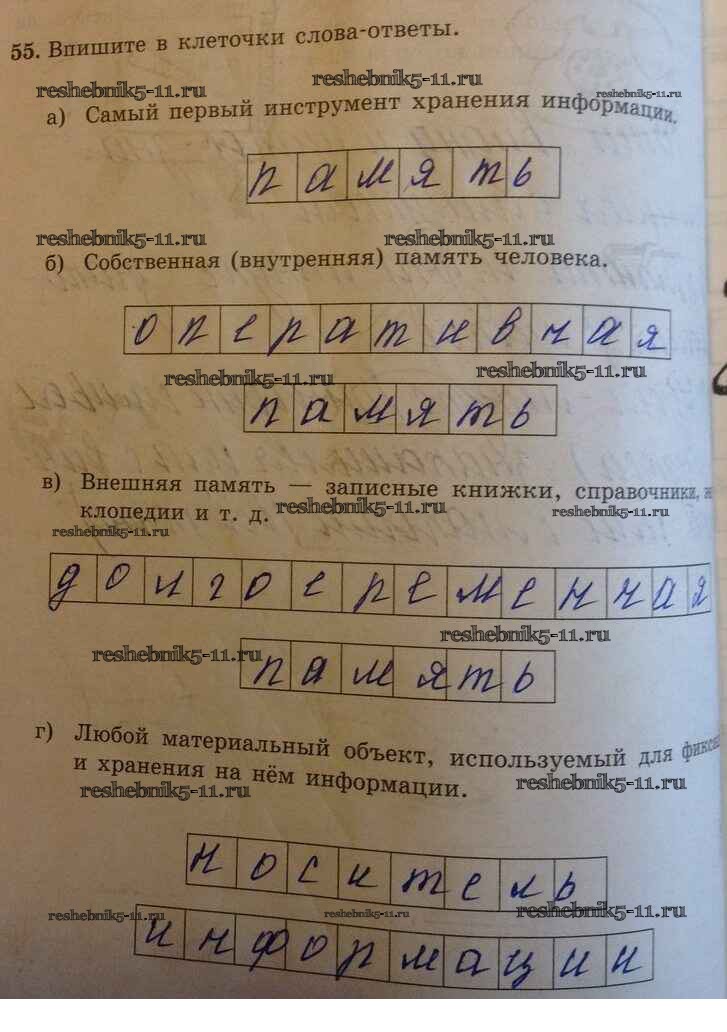 55. Впишите в клеточки слова-ответы.
reshebnik5-11.ru
reshebnik5-11.ru
reshebnik5-11.ru
а) Самый первый инструмент хранения информации.
память
reshebnik5-11.ru
reshebnik5-11.ru
б) Собственная (внутренняя) память человека.
оперативная
reshebnik5-11.ru
reshebnik5-11.ru
память
в) Внешняя память — записные книжки, справочники,
клопедии и т. д.
reshebnik5-11.ru
reshebnik5-11.ru
reshebnik5-11.ru
долговременная
reshebnik5-11.ru
reshebnik5-11.ru
память
г) Любой материальный объект, используемый для
и хранения на нём информации.
reshebnik5-11.ru
reshebnik5-11.ru
носитель
reshebnik5-11.ru
reshebnik5-11.ru
reshebnik5-11.ru
информации